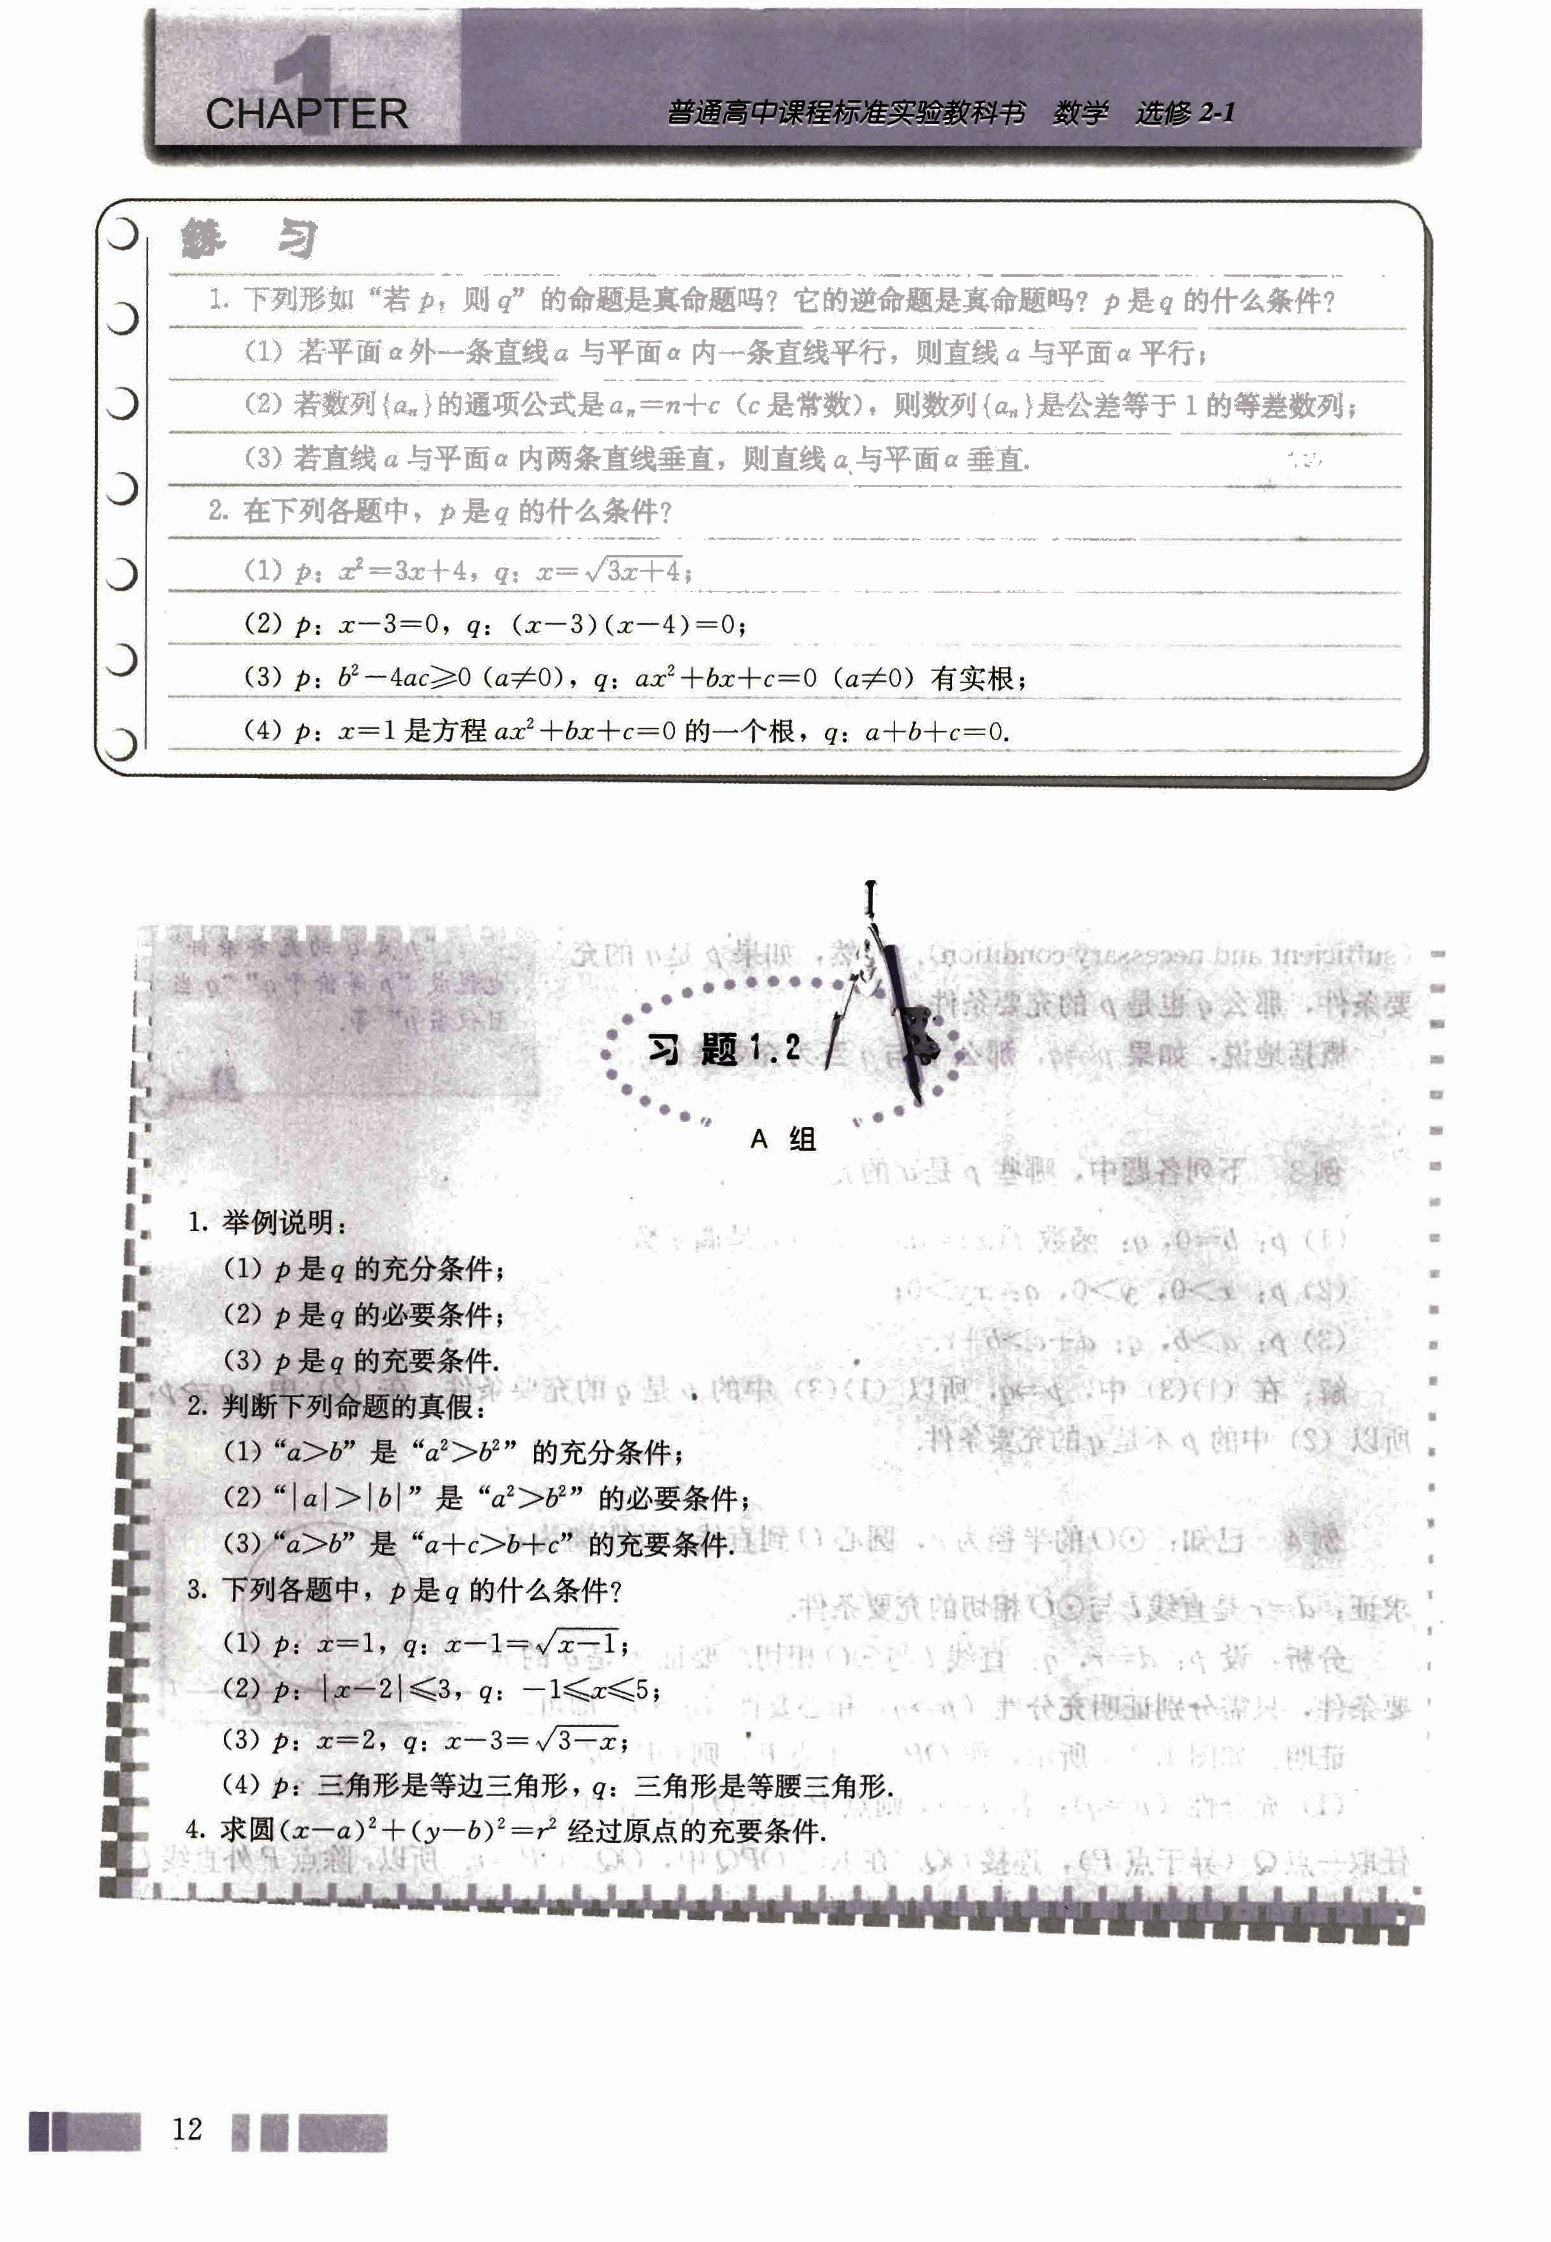 1
CHAPTER
普通高中课程标准实验教科书 数学 选修 2-1
练 习
1. 下列形如“若 p，则 q”的命题是真命题吗？它的逆命题是真命题吗？p 是 q 的什么条件？
(1) 若平面 α 外一条直线 a 与平面 α 内一条直线平行，则直线 a 与平面 α 平行；
(2) 若数列{aₙ}的通项公式是 aₙ=n+c（c 是常数），则数列{aₙ}是公差等于 1 的等差数列；
(3) 若直线 a 与平面 α 内两条直线垂直，则直线 a 与平面 α 垂直.
2. 在下列各题中，p 是 q 的什么条件？
(1) p：x²=3x+4，q：x=√(3x+4)；
(2) p：x−3=0，q：(x−3)(x−4)=0；
(3) p：b²−4ac⩾0 (a≠0)，q：ax²+bx+c=0（a≠0）有实根；
(4) p：x=1 是方程 ax²+bx+c=0 的一个根，q：a+b+c=0.
习 题 1.2
A 组
1. 举例说明：
(1) p 是 q 的充分条件；
(2) p 是 q 的必要条件；
(3) p 是 q 的充要条件.
2. 判断下列命题的真假：
(1)“a>b”是“a²>b²”的充分条件；
(2)“|a|>|b|”是“a²>b²”的必要条件；
(3)“a>b”是“a+c>b+c”的充要条件.
3. 下列各题中，p 是 q 的什么条件？
(1) p：x=1，q：x−1=√(x−1)；
(2) p：|x−2|⩽3，q：−1⩽x⩽5；
(3) p：x=2，q：x−3=√(3−x)；
(4) p：三角形是等边三角形，q：三角形是等腰三角形.
4. 求圆(x−a)²+(y−b)²=r² 经过原点的充要条件.
12